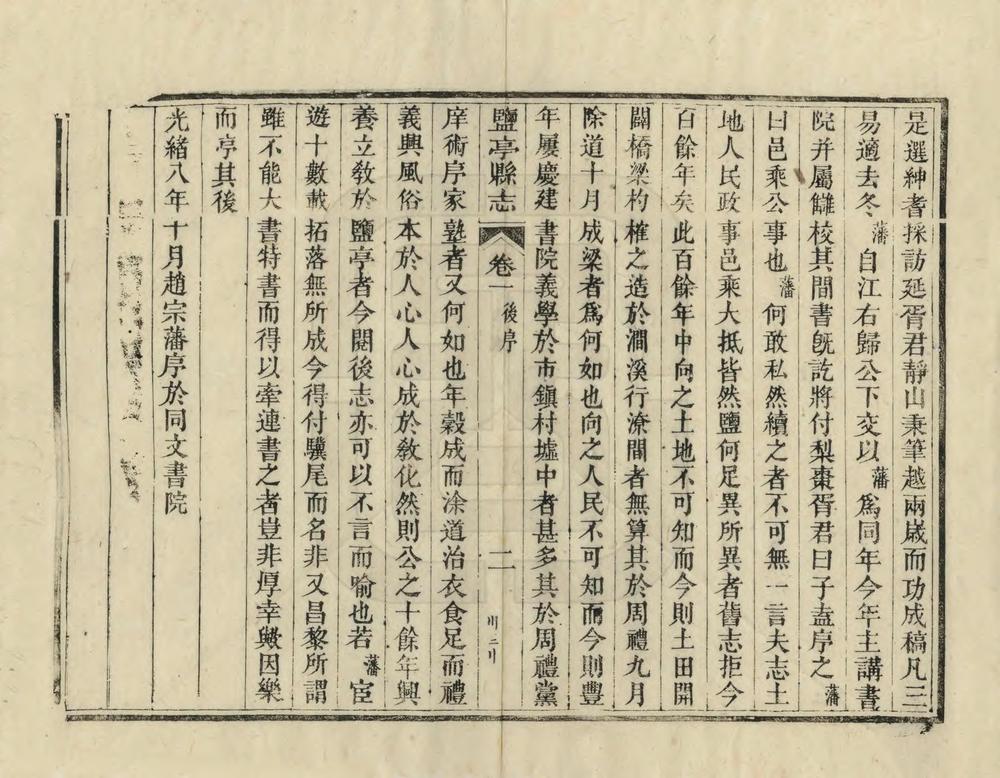 是選紳耆採訪延胥君靜山秉筆越兩歲而功成稿凡三
易適去冬藩自江右歸公下交以藩爲同年今年主講書
院并屬讎校其間書旣訖將付梨棗胥君曰子盍序之藩
曰邑乘公事也藩何敢私然續之者不可無一言夫志土
地人民政事邑乘大抵皆然鹽何足異所異者舊志拒今
百餘年矣此百餘年中向之土地不可知而今則土田開
闢橋梁杓榷之造於澗溪行潦間者無算其於周禮九月
除道十月成梁者爲何如也向之人民不可知而今則豐
年屢慶建書院義學於市鎭村墟中者甚多其於周禮黨
鹽亭縣志 卷一 後序 二
庠術序家塾者又何如也年穀成而涂道治衣食足而禮
義興風俗本於人心人心成於敎化然則公之十餘年興
養立敎於鹽亭者今閱後志亦可以不言而喻也若藩宦
遊十數載拓落無所成今得付驥尾而名非又昌黎所謂
雖不能大書特書而得以牽連書之者豈非厚幸歟因樂
而序其後
光緒八年十月趙宗藩序於同文書院